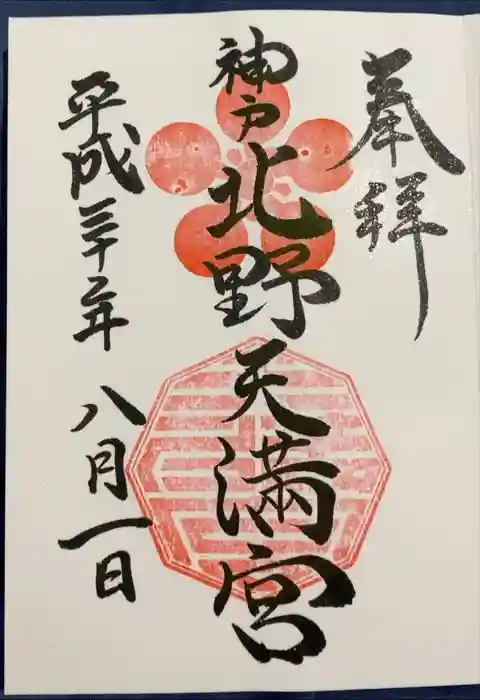 奉拝
神戸北野天満宮
平成三十年 八月一日